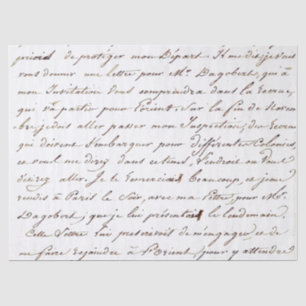 de protéger mon Départ. Il me dit, je vais
vous donner une lettre pour Mr. Dagobert, qui à
mon Invitation vous comprendra dans la Recrue,
qui va partir pour L'orient. Sur la fin de Novem
bre, je dois aller passer mon Inspection, des Recrues
qui doivent s'embarquer pour différentes Colonies,
et vous me direz dans ce tems, l'endroit ou vous
désirez aller. Je le remerciai Beaucoup, et je me
rendis à Paris le Soir, avec ma Lettre pour Mr.
Dagobert, que je lui présentai le lendemain.
Cette Lettre lui prescrivoit de m'engager, et de
me faire rejoindre à L'Orient, pour y attendre